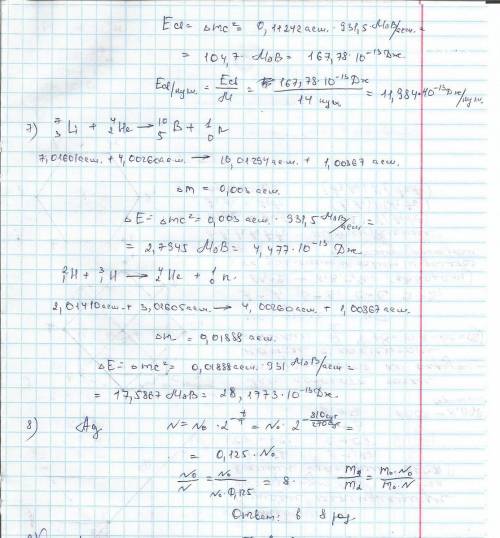 Eсв = Δmc² = 0,11242 а.е.м. · 931,5 МэВ/а.е.м. =
= 104,7 · МэВ = 167,78 · 10⁻¹³ Дж
Eсв/нук. = Eсв/M = 167,78 · 10⁻¹³ Дж / 14 нук = 11,984 · 10⁻¹³ Дж/нук.
7) ⁷₃Li + ⁴₂He → ¹⁰₅B + ¹₀n
7,01601 а.е.м. + 4,00260 а.е.м. → 10,01294 а.е.м. + 1,00867 а.е.м.
Δm = 0,003 а.е.м.
ΔE = Δmc² = 0,003 а.е.м. · 931,5 МэВ/а.е.м. =
= 2,7945 МэВ = 4,477 · 10⁻¹³ Дж
²₁H + ³₁H → ⁴₂He + ¹₀n.
2,01410 а.е.м. + 3,01605 а.е.м. → 4,00260 а.е.м. + 1,00867 а.е.м.
Δm = 0,01888 а.е.м.
ΔE = Δmc² = 0,01888 а.е.м. · 931 МэВ/а.е.м =
= 17,5867 МэВ = 28,1773 · 10⁻¹³ Дж.
8) Ag N = N₀ · 2^(-t/T) = N₀ · 2^(-810сут/270сут) =
= 0,125 · N₀
N₀/N = N₀/N₀·0,125 = 8. m₁/m₂ = m₀·N₀/m₀·N
Ответ: в 8 раз